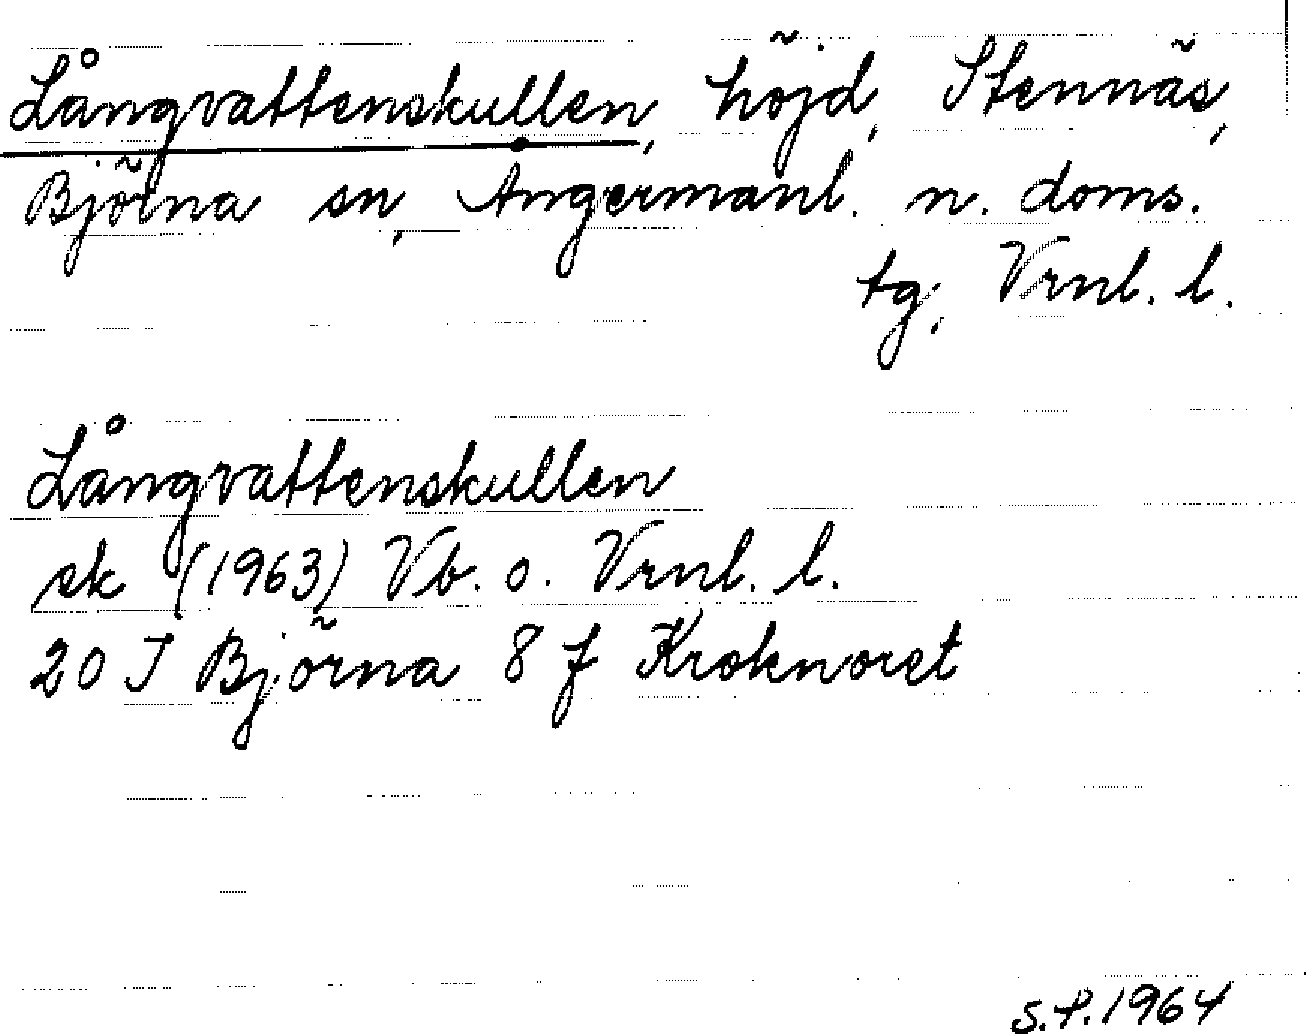 Långvattenskullen, höjd, Stennäs,
Björna sn, Ångermanl. n. doms.
tg, Vrnl. l.
Långvattenskullen
ek (1963) Vb. o. Vrnl. l.
20 I Björna 8 f Kroknoret
S.P. 1964